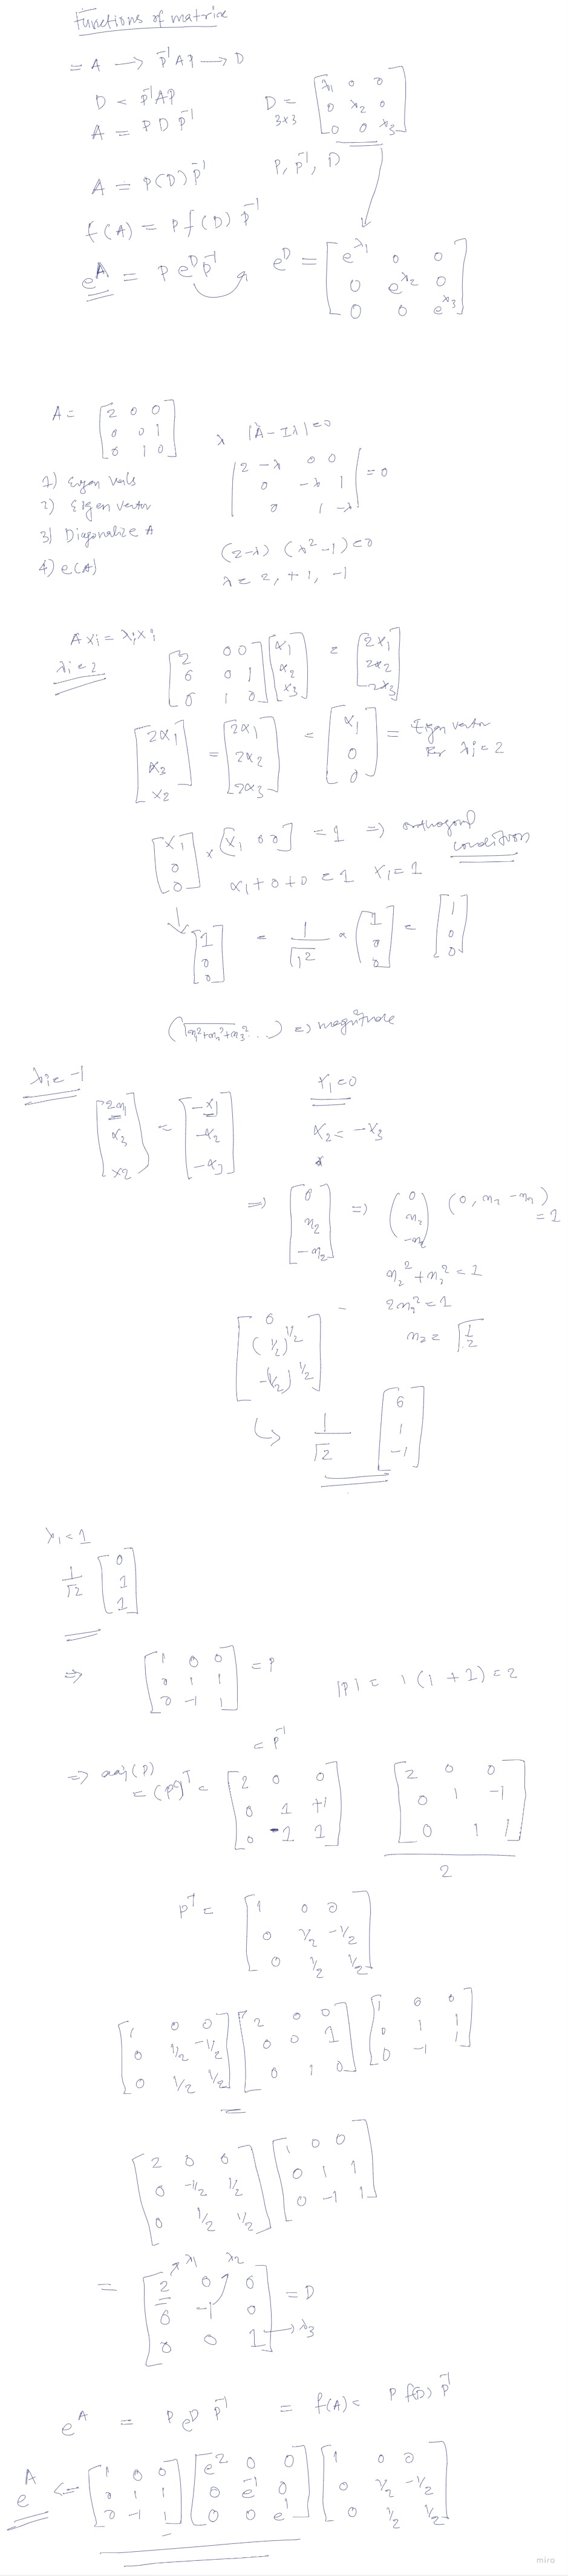 Functions of matrix
= A → P⁻¹AP → D
D = P⁻¹AP
A = P D P⁻¹
D 3x3 = [λ1 0 0; 0 λ2 0; 0 0 λ3]
A = P(D)P⁻¹
P, P⁻¹, D
f(A) = P f(D) P⁻¹
e^A = P e^D P⁻¹
e^D = [e^λ1 0 0; 0 e^λ2 0; 0 0 e^λ3]
A = [2 0 0; 0 0 1; 0 1 0]
λ |A - Iλ| = 0
|2-λ 0 0; 0 -λ 1; 0 1 -λ| = 0
1) Eigen vals
2) Eigen vector
3) Diagonalize A
4) e(A)
(2-λ) (λ²-1) = 0
λ = 2, +1, -1
A xi = λi xi
λi = 2
[2 0 0; 0 0 1; 0 1 0] [x1; x2; x3] = [2x1; 2x2; 2x3]
[2x1; x3; x2] = [2x1; 2x2; 2x3] = [x1; 0; 0] = Eigen vector for λi = 2
[x1; 0; 0] x [x1 0 0] = 1 ⇒ orthogonal condition
x1 + 0 + 0 = 1 x1 = 1
↓ [1; 0; 0] = 1/√1² x [1; 0; 0] = [1; 0; 0]
(√n1²+n2²+n3²...) ⇒ magnitude
λi = -1
[2x1; x3; x2] = [-x1; -x2; -x3]
x1 = 0
x2 = -x3
⇒ [0; n2; -n2] ⇒ (0; n2; -n2) (0, n2 -n2) = 1
n2² + n2² = 1
2n2² = 1
n2 = √1/2
[0; (1/2)^1/2; -(1/2)^1/2]
↳ 1/√2 [0; 1; -1]
λi = 1
1/√2 [0; 1; 1]
⇒ [1 0 0; 0 1 1; 0 -1 1] = P
|P| = 1(1+1) = 2
= P⁻¹
⇒ adj(P) = (Pᶜ)ᵀ = [2 0 0; 0 1 +1; 0 -1 1]
[2 0 0; 0 1 -1; 0 1 1] / 2
P⁻¹ = [1 0 0; 0 1/2 -1/2; 0 1/2 1/2]
[1 0 0; 0 1/2 -1/2; 0 1/2 1/2] [2 0 0; 0 0 1; 0 1 0] [1 0 0; 0 1 1; 0 -1 1]
[2 0 0; 0 -1/2 1/2; 0 1/2 1/2] [1 0 0; 0 1 1; 0 -1 1]
λ1 λ2
= [2 0 0; 0 -1 0; 0 0 1] = D
→ λ3
e^A = P e^D P⁻¹ = f(A) = P f(D) P⁻¹
e^A <= [1 0 0; 0 1 1; 0 -1 1] [e² 0 0; 0 e⁻¹ 0; 0 0 e¹] [1 0 0; 0 1/2 -1/2; 0 1/2 1/2]
miro